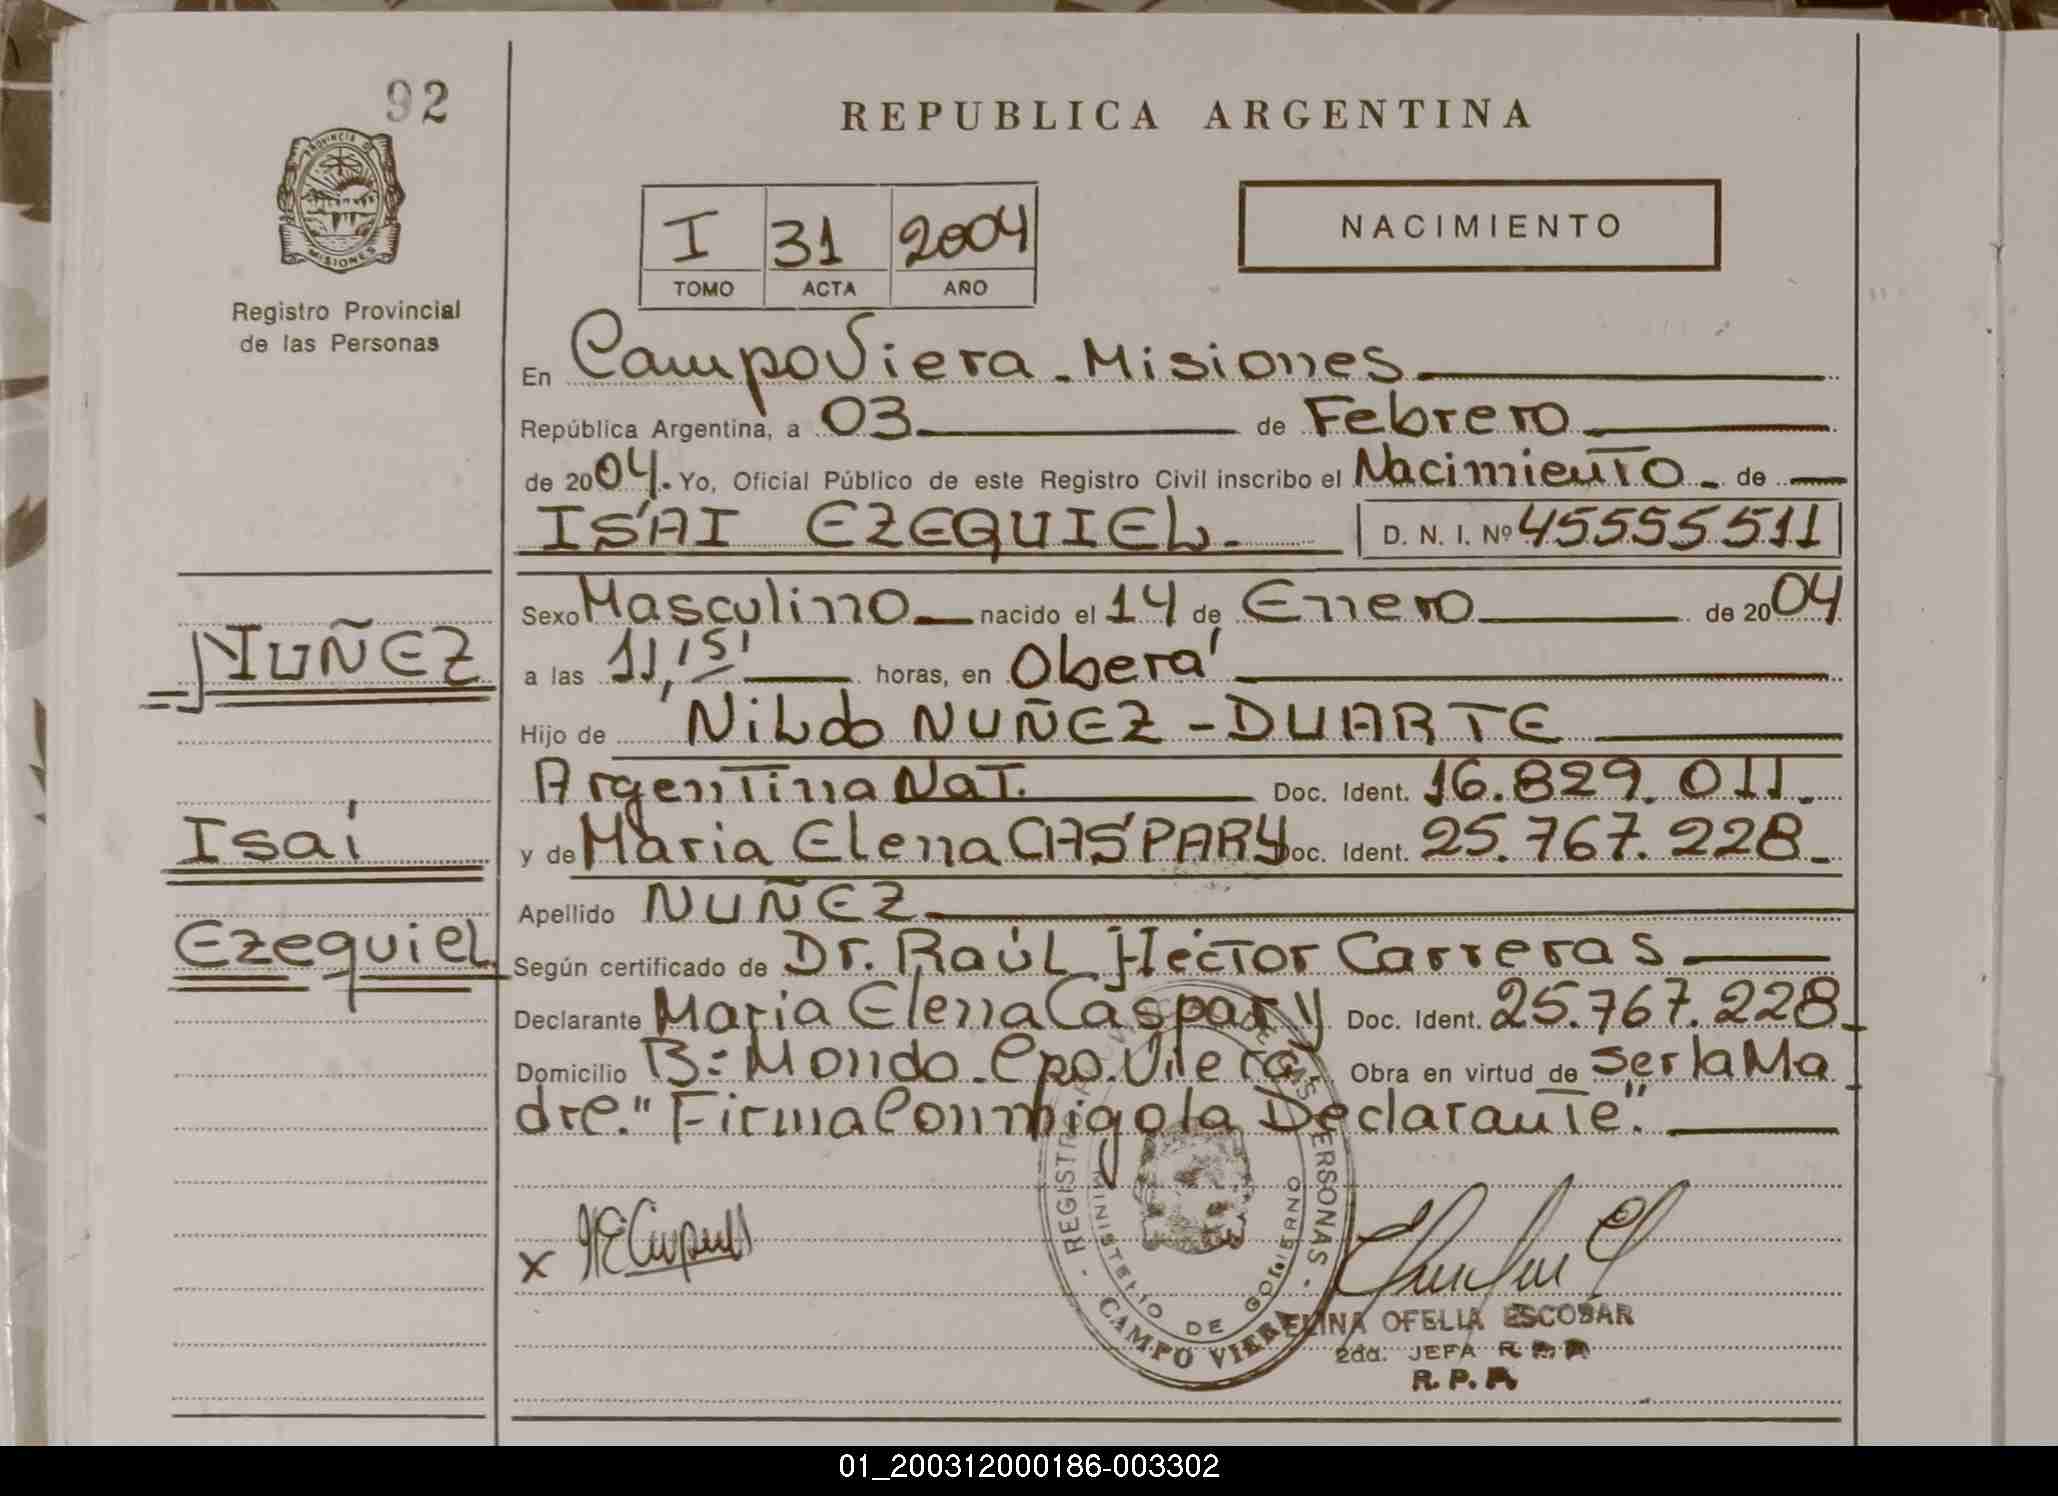 92
REPUBLICA ARGENTINA
PROVINCIA DE
MISIONES
I 31 2004
TOMO ACTA AÑO
NACIMIENTO
Registro Provincial
de las Personas
En CampoViera - Misiones
República Argentina, a 03 de Febrero
de 2004. Yo, Oficial Público de este Registro Civil inscribo el Nacimiento - de
ISAI EZEQUIEL - D. N. I. Nº 45555511
Sexo Masculino nacido el 14 de Enero de 2004
NUÑEZ
a las 11,15' horas, en Oberá
Hijo de Nildo NUÑEZ - DUARTE
Argentina Nat. Doc. Ident. 16.829.011.
Isaí
y de Maria Elena CASPARY Doc. Ident. 25.767.228 -
Apellido NUÑEZ
Ezequiel
Según certificado de Dr. Raúl Héctor Carreras
Declarante Maria Elena Caspary Doc. Ident. 25.767.228 -
Domicilio B: Mondo - Cpo. Viera Obra en virtud de ser la Ma -
dre." Firma Conmigo la Declarante".
x
REGISTRO PERSONAS - CAMPO VIERA
MINISTERIO DE GOBIERNO
ELINA OFELIA ESCOBAR
2da. JEFA R.P.P
R.P.P.
01_200312000186-003302